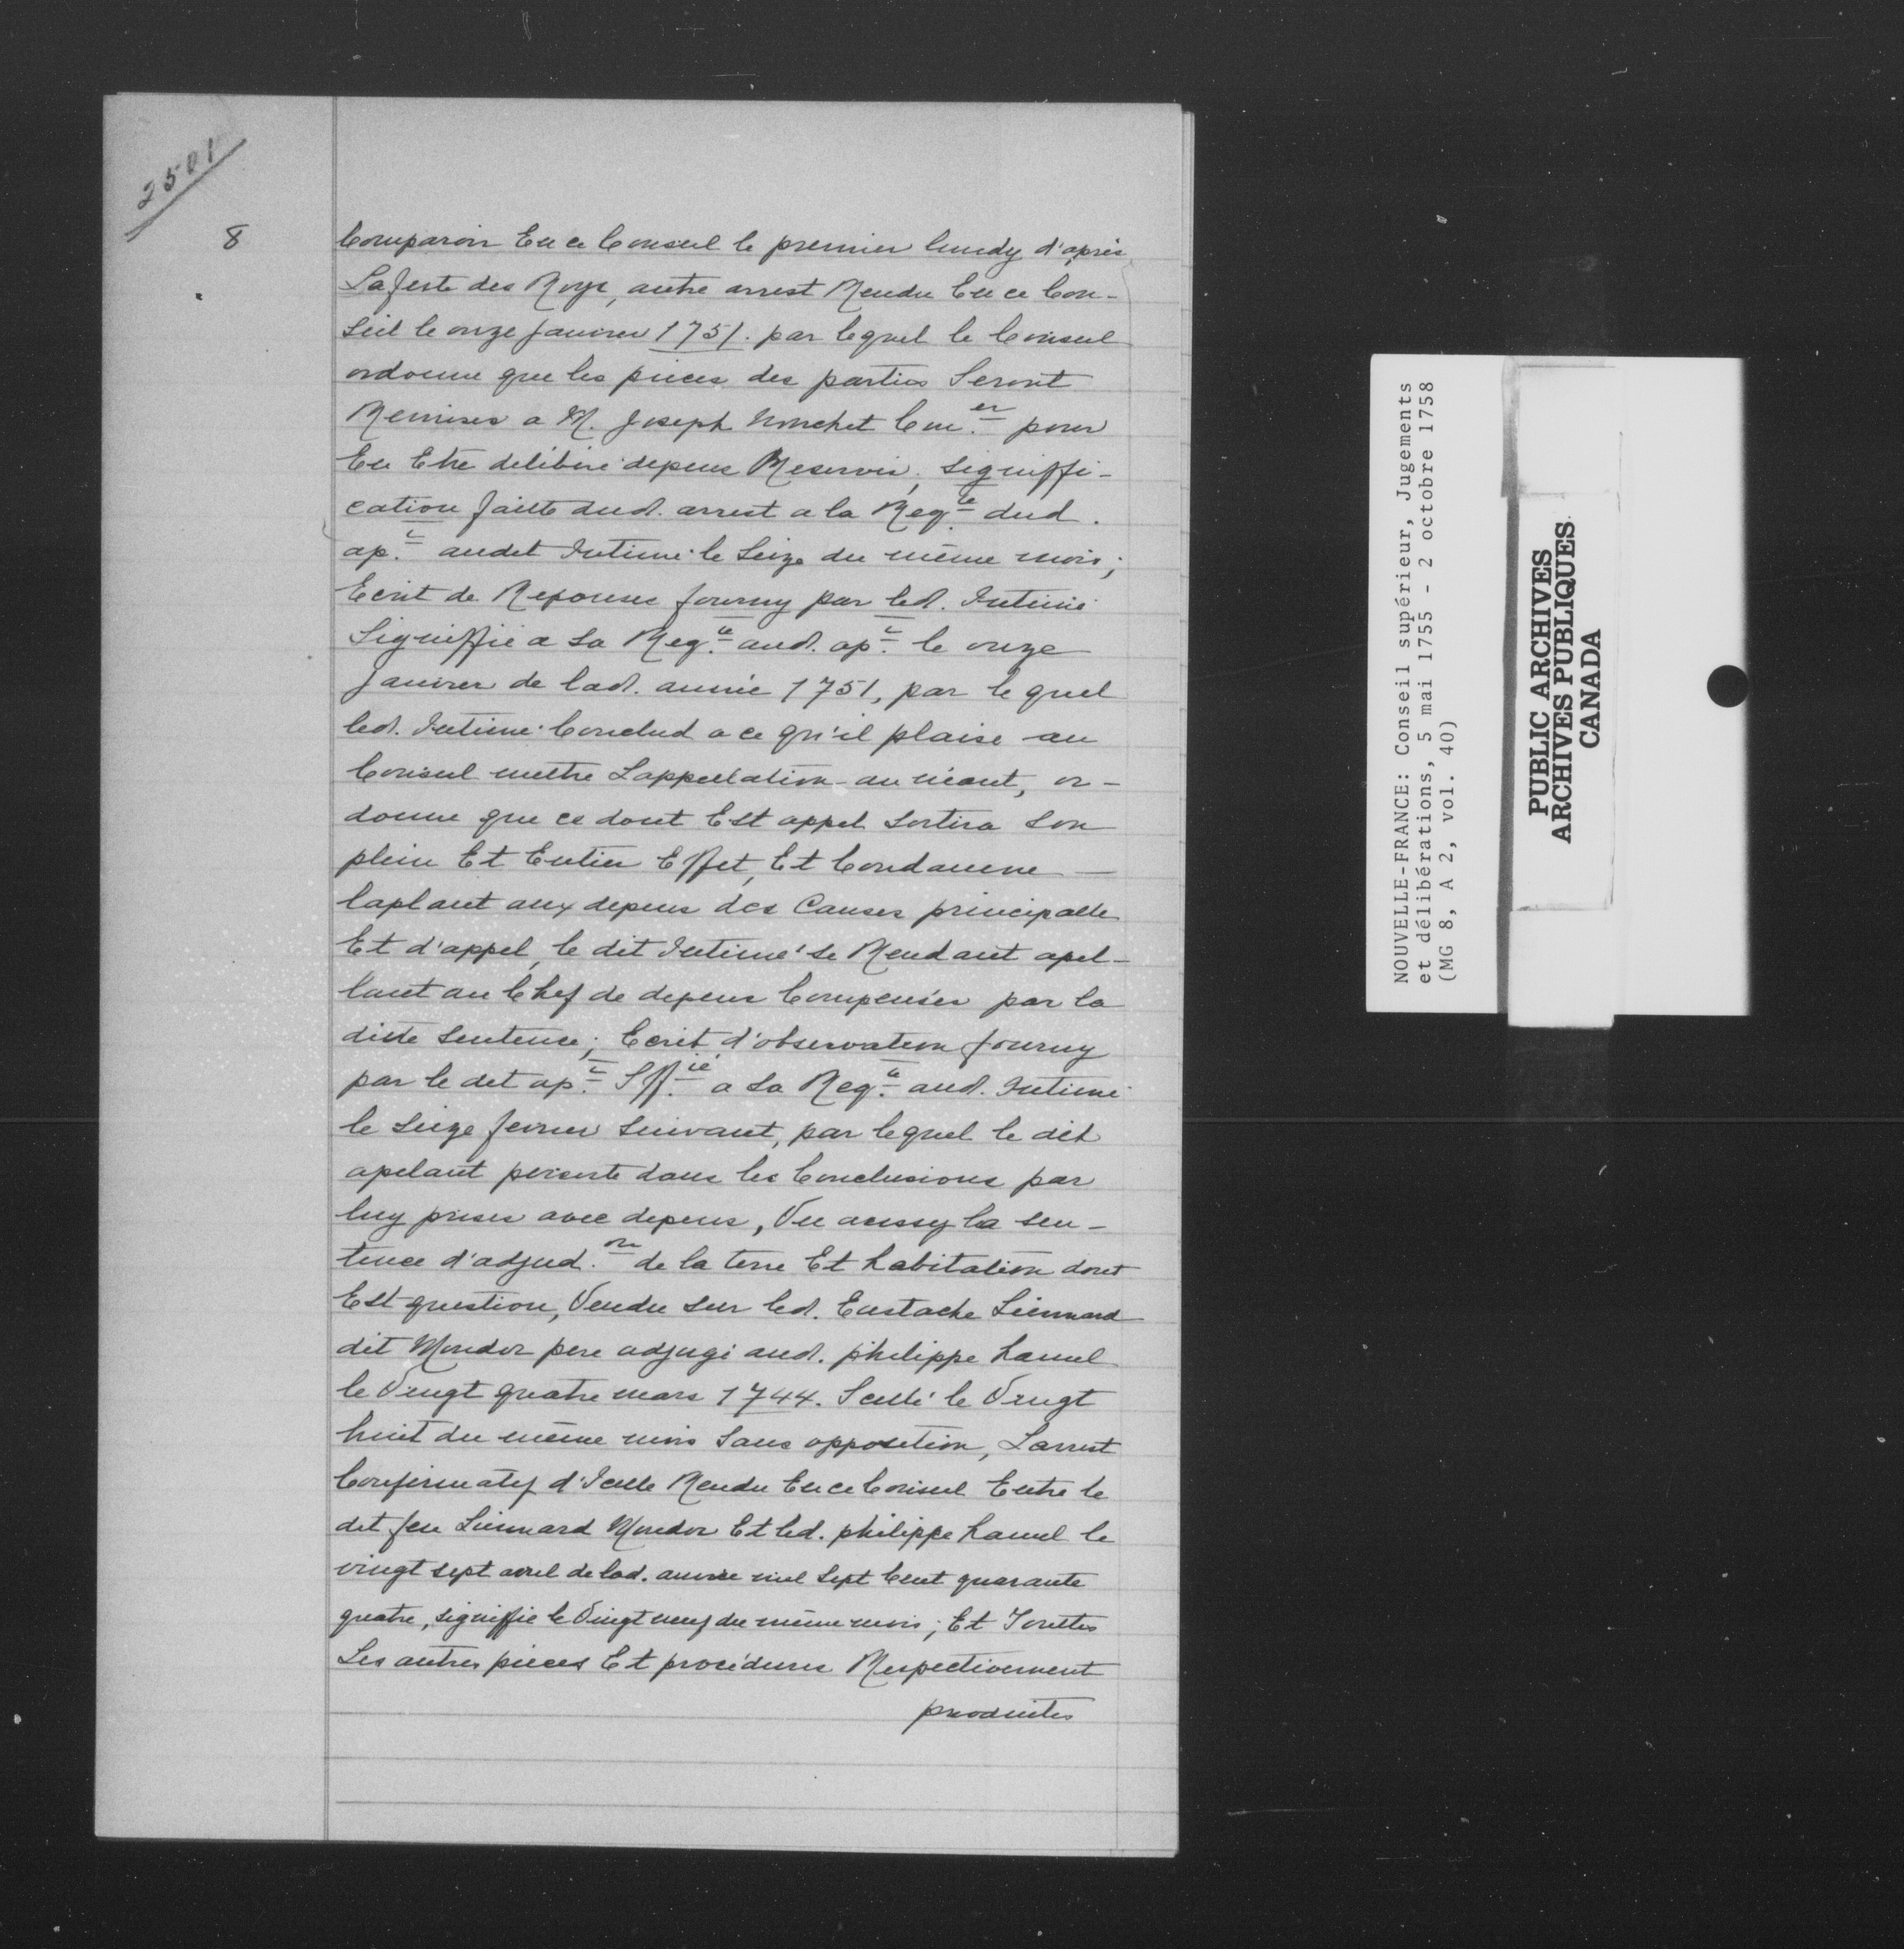 2501
8
Comparoir En ce Conseil le premier lundy d'après
La feste des Roys, autre arrest Rendu En ce Con-
Seil le onze janvier 1751. par lequel le Conseil
ordonne que les pieces des parties Seront
Remises a M. Joseph Nouchet Con.er pour
En Etre deliberé depens Reservés, signiffi-
cation faitte dud. arrest a la Reqte dud.
ap.t audit Intimé le Seize du même mois;
Ecrit de Reponses fourny par led. Intimé
Signiffié a Sa Reqte aud. ap.t le onze
Janvier de lad. année 1751, par lequel
led. Intimé Conclud a ce qu'il plaise au
Conseil mettre Lappellation au néant, or-
donne que ce dont Est appel Sortira Son
plein Et Entier Effet, Et Condamne
laplant aux depens des Causes principalle
Et d'appel, le dit Intimé se Rendant apel-
lant au Chef de depens Compensés par la
ditte Sentence; Ecrit d'observation fourny
par le dit ap.t Sff.ié a Sa Reqte aud. Intimé
le Seize fevrier Suivant, par lequel le dit
apelant persiste dans les Conclusions par
luy prises avec depens, Vu aussy la Sen-
tence d'adjud.on de la terre Et habitation dont
Est question, Vendue Sur led. Eustache Liennard
dit Mondor pere adjugé aud. philippe hamel
le Vingt quatre mars 1744. Scellé le Vingt
huit du même mois Sans opposition, Larrest
Confirmatif d'Icelle Rendu En ce Conseil Entre le
dit feu Liennard Mondor Et led. philippe hamel le
vingt sept avril de lad. année mil Sept Cent quarante
quatre, signiffié le Vingt neuf du même mois; Et Touttes
Les autres pieces Et procédures Respectivement
produites
NOUVELLE-FRANCE: Conseil supérieur, Jugements
et délibérations, 5 mai 1755 - 2 octobre 1758
(MG 8, A 2, vol. 40)
PUBLIC ARCHIVES
ARCHIVES PUBLIQUES
CANADA